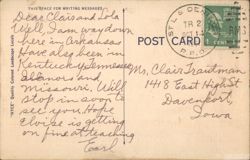 THIS SPACE FOR WRITING MESSAGES
Dear Clair and Lola
Well, I am way down
here in Arkansas
Have also been in
Kentucky, Tennessee
Illinois and
Missouri. Will
stop in soon to
see you. Hope
is getting
on fine at teaching
Earl
POST CARD
ST. L &
TR 2
OCT
1 CENT
Mr. Clair Trautman
1418 East High St
Davenport,
Iowa